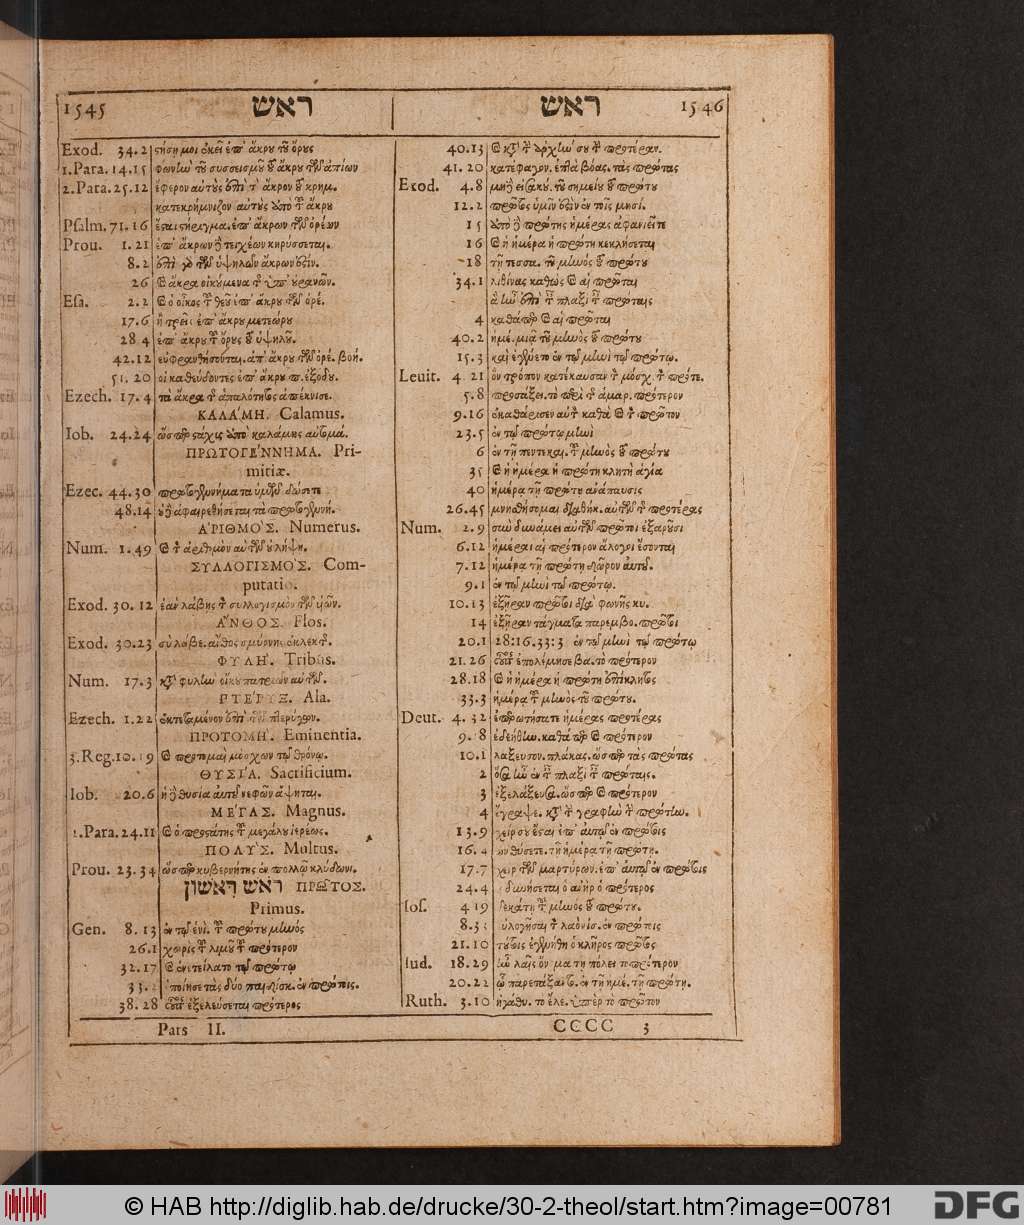 1545 ראש ראש 1546
Exod. 34.2 στήσῃ μοι ἐκεῖ ἐπ' ἄκρου τοῦ ὄρους
1.Para. 14.15 φωνὴν τοῦ συσσεισμοῦ ἄκρου τῶν ἀπίων
2.Para. 25.12 ἔφερον αὐτοὺς ἐπὶ τὸ ἄκρον τοῦ κρημ.
κατεκρήμνιζον αὐτοὺς ἀπὸ τοῦ ἄκρου
Psalm. 71.16 ἔσται στήριγμα. ἐπ' ἄκρων τῶν ὀρέων
Prou. 1.21 ἐπ' ἄκρων δὲ τειχέων κηρύσσεται.
8.2 ἐπὶ γὰρ τῶν ὑψηλῶν ἄκρων ἐστίν.
26 καὶ ἄκρα οἰκούμενα τῆς ὑπ' οὐρανῶν.
Esa. 2.2 καὶ ὁ οἶκος τοῦ θεοῦ ἐπ' ἄκρου τῶν ὀρέ.
17.6 ἢ τρεῖς ἐπ' ἄκρου μετεώρου
28 4 ἐπ' ἄκρου τοῦ ὄρους τοῦ ὑψηλοῦ.
42.12 εὐφρανθήσονται. ἀπ' ἄκρου τῶν ὀρέ. βοή.
51.20 οἱ καθεύδοντες ἐπ' ἄκρου π. ἐξόδου.
Ezech. 17.4 τὰ ἄκρα τῆς ἁπαλότητος ἀπέκνισε.
ΚΑΛΑ΄ΜΗ. Calamus.
Iob. 24.24 ὥσπερ στάχυς ἀπὸ καλάμης αὐτομά.
ΠΡΩΤΟΓΕ΄ΝΝΗΜΑ. Pri-
mitiæ.
Ezec. 44.30 πρωτογεννήματα ὑμῶν δώσετε
48.14 οὐδὲ ἀφαιρεθήσεται τὰ πρωτογεννή.
Α᾿ΡΙΘΜΟ΄Σ. Numerus.
Num. 1.49 καὶ τὸν ἀριθμὸν αὐτῶν οὐ λήψῃ.
ΣΥΛΛΟΓΙΣΜΟ΄Σ. Com-
putatio.
Exod. 30.12 ἐὰν λάβῃς τὸν συλλογισμὸν τῶν υἱῶν.
Α῎ΝΘΟΣ. Flos.
Exod. 30.23 σὺ λάβε. ἄνθος σμύρνης ἐκλεκτῆς.
ΦΥΛΗ΄. Tribus.
Num. 17.3 κατὰ φυλὴν οἴκου πατριῶν αὐτῶν.
ΠΤΕ΄ΡΥΞ. Ala.
Ezech. 1.22 ἐκτεταμένον ἐπὶ τῶν πτερύγων.
ΠΡΟΤΟΜΗ΄. Eminentia.
3.Reg. 10.19 καὶ προτομαὶ μόσχων τῷ θρόνῳ.
ΘΥΣΙ΄Α. Sacrificium.
Iob. 20.6 ἡ δὲ θυσία αὐτοῦ νεφῶν ἅψηται.
ΜΕ΄ΓΑΣ. Magnus.
2.Para. 24.11 καὶ ὁ προστάτης τοῦ μεγάλου ἱερέως.
ΠΟΛΥ΄Σ. Multus.
Prou. 23.34 ὥσπερ κυβερνήτης ἐν πολλῷ κλύδωνι.
ראש ראשון ΠΡΩ͂ΤΟΣ.
Primus.
Gen. 8.13 ἐν τῷ ἑνὶ. τοῦ πρώτου μηνὸς
26.1 χωρὶς τοῦ λιμοῦ τοῦ πρότερον
32.17 καὶ ἐνετείλατο τῷ πρώτῳ
33.2 ἐποίησε τὰς δύο παιδίσκ. ἐν πρώτοις.
38.28 οὗτος ἐξελεύσεται πρότερος
Pars II.
40.13 καὶ κατὰ τὴν ἀρχήν σου τὴν προτέραν.
41.20 κατέφαγον. ἑπτὰ βόας. τὰς πρώτας
Exod. 4.8 μηδὲ εἰσακού. τοῦ σημείου τοῦ πρώτου
12.2 πρῶτος ὑμῖν ἐστὶν ἐν τοῖς μησί.
15 ἀπὸ δὲ πρώτης ἡμέρας ἀφανιεῖτε
16 καὶ ἡ ἡμέρα ἡ πρώτη κεκλήσεται
18 τῇ τεσσα. τοῦ μηνὸς τοῦ πρώτου
34.1 λιθίνας καθὼς καὶ αἱ πρῶται
ἃ ἦν ἐπὶ τῶν πλαξὶ τῶν πρώταις
4 καθάπερ καὶ αἱ πρῶται
40.2 ἡμέ. μιᾷ τοῦ μηνὸς τοῦ πρώτου
15.3 καὶ ἐγένετο ἐν τῷ μηνὶ τῷ πρώτῳ.
Leuit. 4 21 ὃν τρόπον κατέκαυσαν τὸν μόσχ. τὸν πρότε.
5.8 προσάξει. τὸ περὶ τῆς ἁμαρ. πρότερον
9.16 ἐκαθάρισεν αὐτὸν καθὰ καὶ τὸν πρῶτον
23.5 ἐν τῷ πρώτῳ μηνὶ
6 ἐν τῇ πεντεκαι. τοῦ μηνὸς τοῦ πρώτου
35 καὶ ἡ ἡμέρα ἡ πρώτη κλητὴ ἁγία
40 ἡμέρα τῇ πρώτῃ ἀνάπαυσις
26.45 μνησθήσομαι διαθήκ. αὐτῶν τῆς προτέρας
Num. 2.9 σὺν δυνάμει αὐτῶν πρῶτοι ἐξαροῦσι
6.12 ἡμέραι αἱ πρότερον ἄλογοι ἔσονται
7.12 ἡμέρᾳ τῇ πρώτῃ δῶρον αὐτοῦ.
9.1 ἐν τῷ μηνὶ τῷ πρώτῳ.
10.13 ἐξῆραν πρῶτοι διὰ φωνῆς κυ.
14 ἐξῆραν τάγματα παρεμβο. πρῶτοι
20.1 28:16.33:3 ἐν τῷ μηνὶ τῷ πρώτῳ
21.26 οὗτος ἐπολέμησε βα. τὸ πρότερον
28.18 καὶ ἡ ἡμέρα ἡ πρώτη ἐπίκλητος
33.3 ἡμέρᾳ τοῦ μηνὸς τοῦ πρώτου.
Deut. 4.32 ἐπερωτήσατε ἡμέρας προτέρας
9.18 ἐδεήθην. καθάπερ καὶ πρότερον
10.1 λάξευσον. πλάκας. ὥσπερ τὰς πρώτας
2 ὅσα ἦν ἐν τῶν πλαξὶ τῶν πρώταις.
3 ἐξελάξευσα. ὥσπερ καὶ πρότερον
4 ἔγραψε. κατὰ τὴν γραφὴν τὴν πρώτην.
13.9 χεῖρ σου ἔσται ἐπ' αὐτῷ ἐν πρώτοις
16.4 ἂν θύσητε. τῇ ἡμέρᾳ τῇ πρώτῃ.
17.7 χεὶρ τῶν μαρτύρων. ἐπ' αὐτῷ ἐν πρώτοις
24.4 δυνήσεται ὁ ἀνὴρ ὁ πρότερος
Ios. 4 19 δεκάτῃ τοῦ μηνὸς τοῦ πρώτου.
8.33 εὐλογῆσαι τὸν λαὸν ἰσ. ἐν πρώτοις
21.10 τούτοις ἐγενήθη ὁ κλῆρος πρῶτος
Iud. 18.29 ἦν λαῒς ὄνομα τῇ πόλει τὸ πρότερον
20.22 οὗ παρετάξαντο. ἐν τῇ ἡμέ. τῇ πρώτῃ.
Ruth. 3.10 ἠγάθυ. τὸ ἔλε. ὑπὲρ τὸ πρῶτον
CCCC 3
© HAB http://diglib.hab.de/drucke/30-2-theol/start.htm?image=00781
DFG